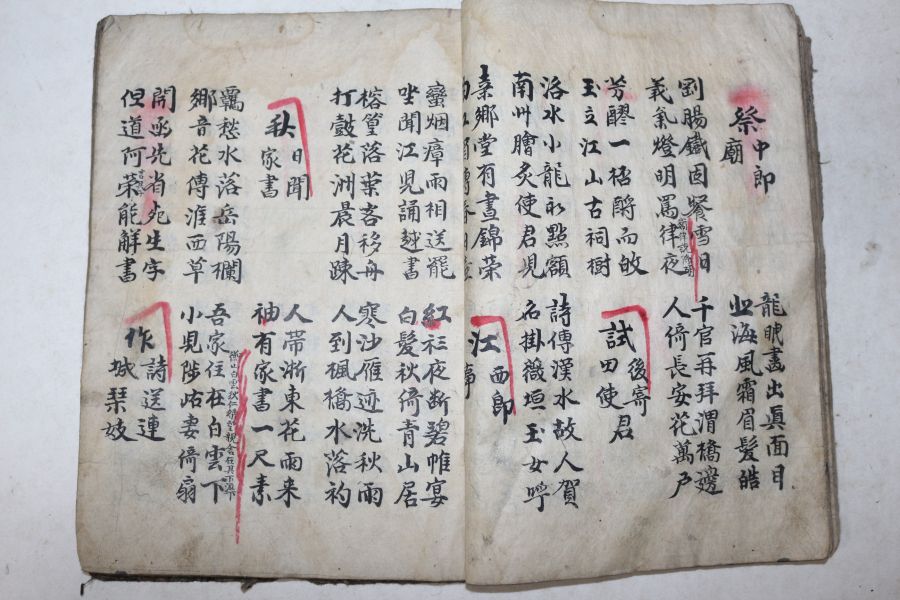 祭中郎廟
龍眠畫出眞面目
北海風霜眉髮皓
剛腸鐵固餐雪日
千官再拜渭橋邊
義秉燈明罵律夜
人倚長安花萬戶
芳醪一榼酹而故
玉立江山古祠樹
試後寄田使君
洛水小龍初點額
詩傳漢水故人賀
南州膾炙使君児
名掛薇垣玉女呼
桑鄉堂有晝錦榮
江西郎
蠻烟瘴雨相送罷
紅衫夜斷碧帷宴
坐聞江児誦越書
白髮秋倚青山居
榕篁落葉客移舟
寒沙雁迹洗秋雨
打鼓花洲晨月踈
人到楓橋水落初
秋日聞家書
人帶浙東花雨来
袖有家書一尺素
羈愁水落岳陽欄
吾家住在白雲下
鄉音花傳淮西草
小児陟岵妻倚扇
開函先省宛生字
但道阿榮能解書
作詩送連城琴妓